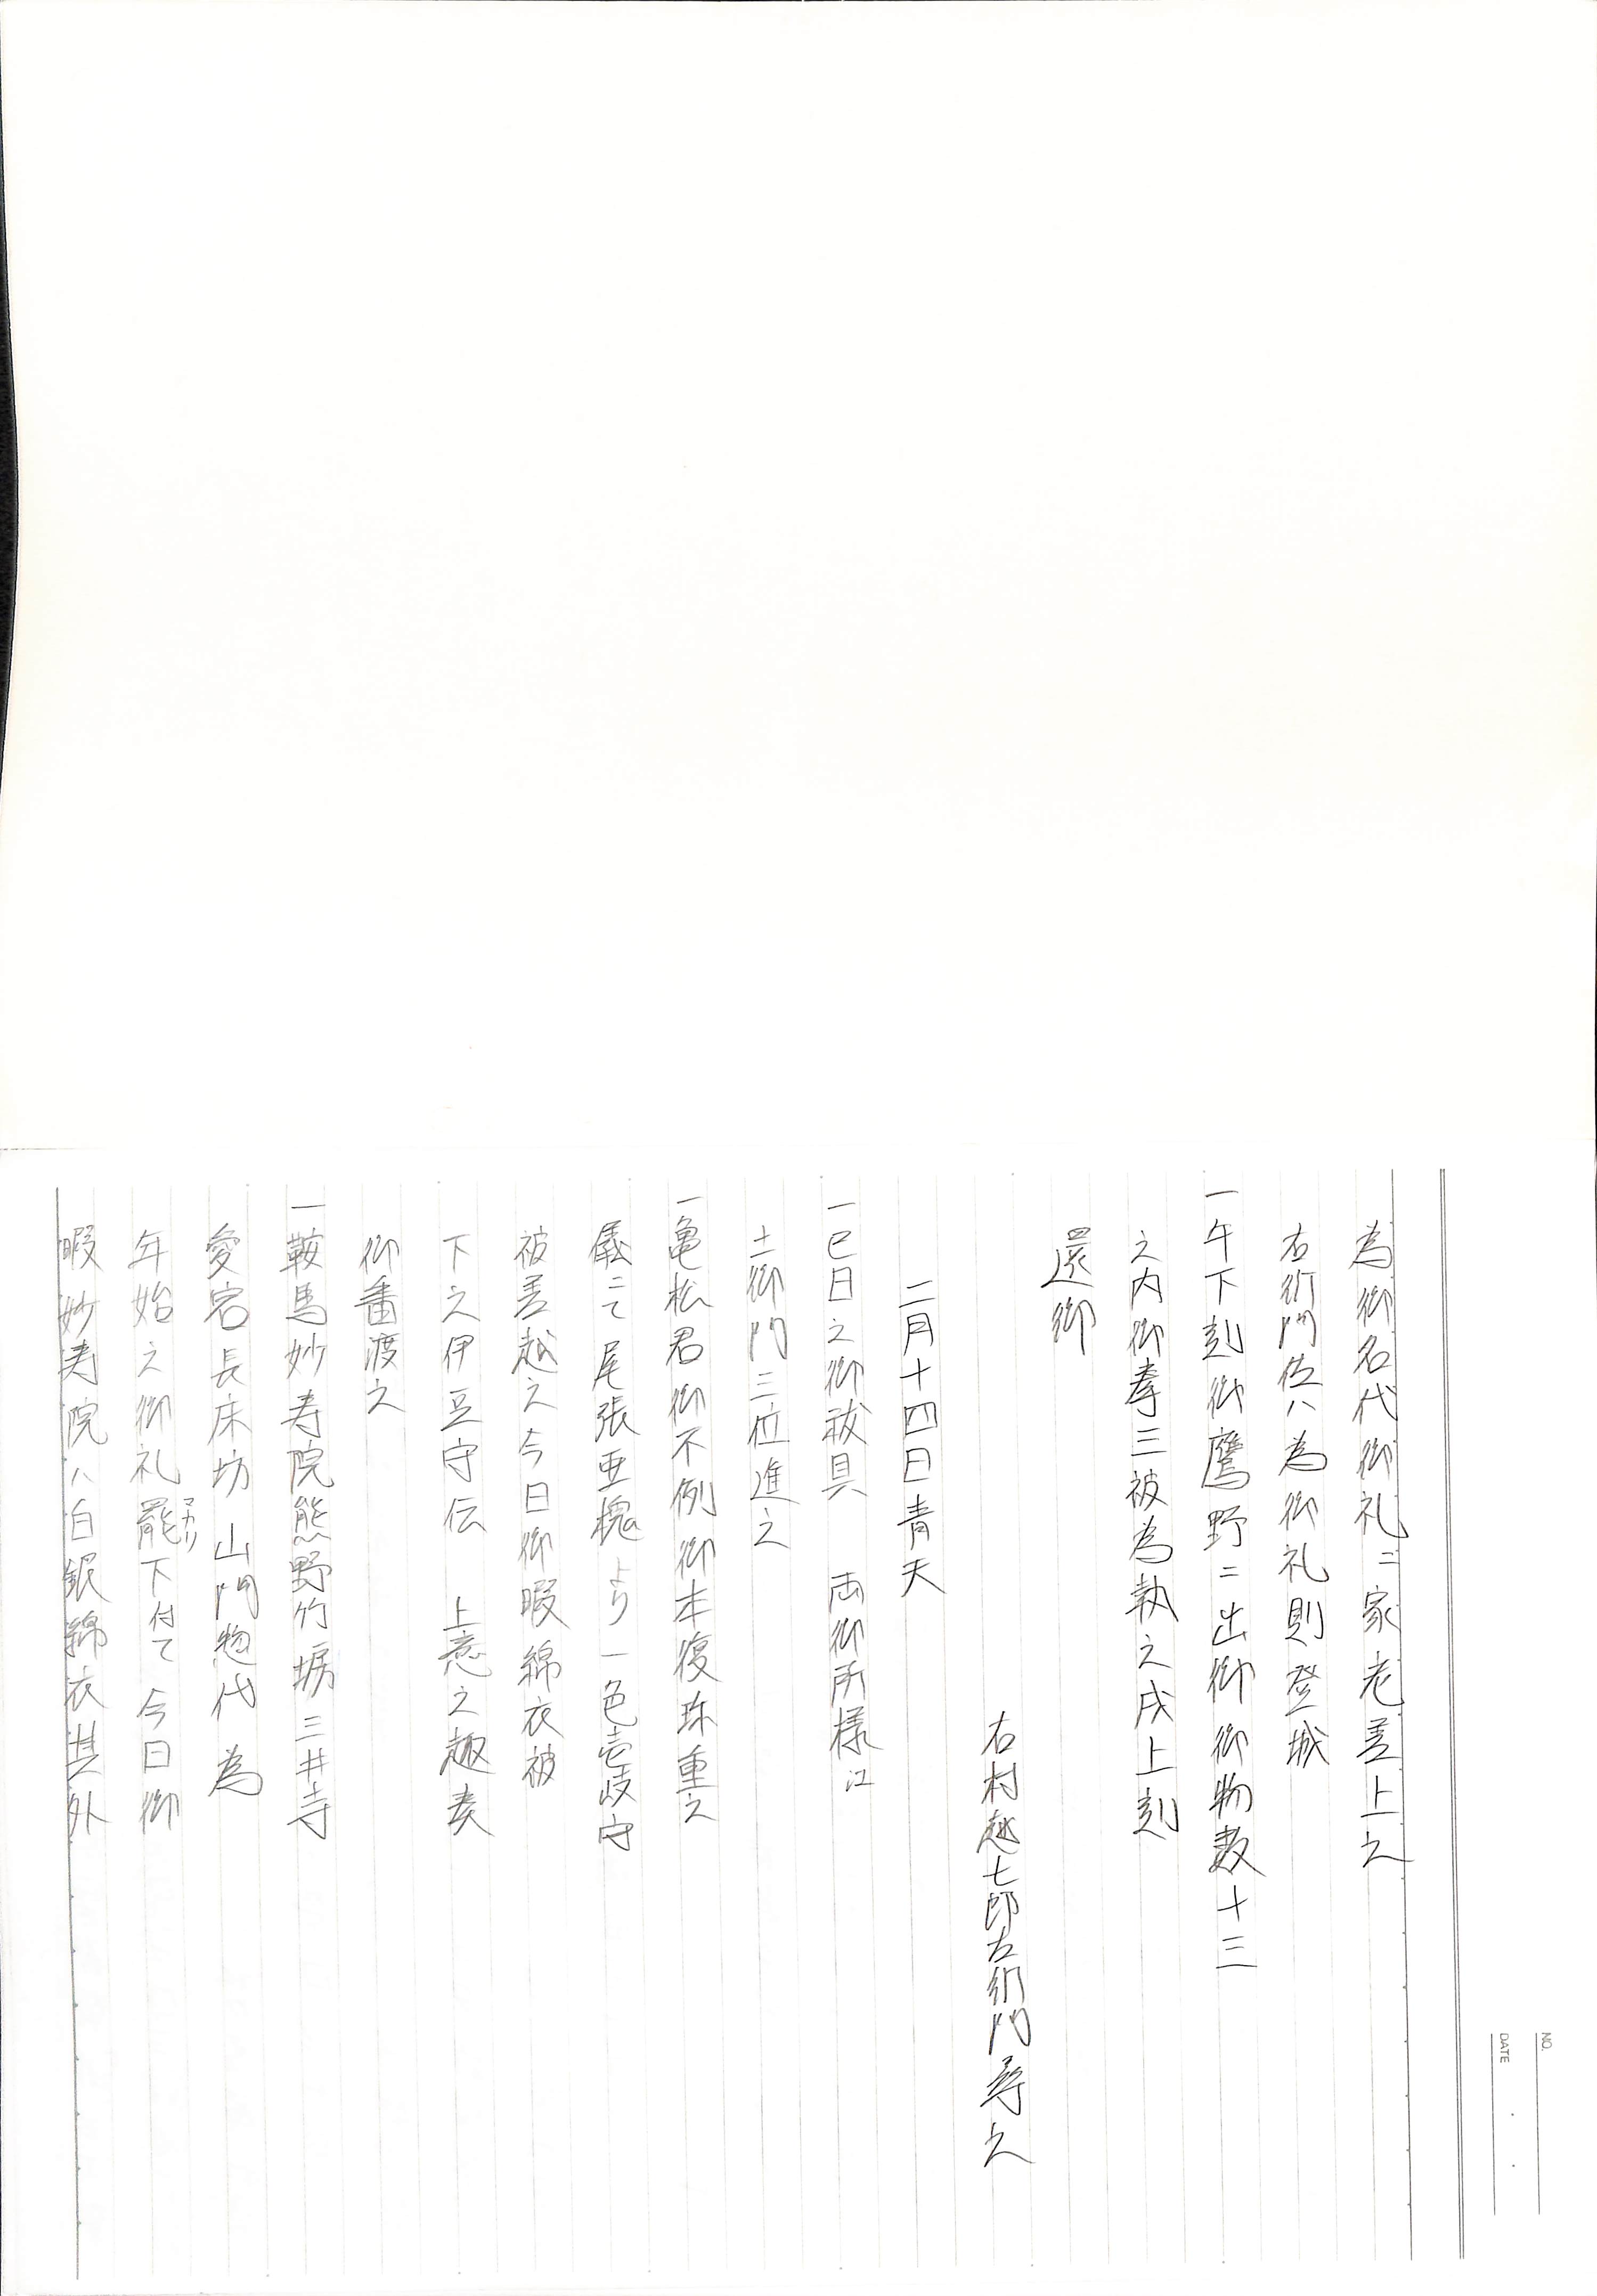 為御名代御礼ニ家老差上之
右衛門佐ハ為御礼則登城
一午下刻御鷹野ニ出御御物数十三
之内御拳三被為執之戌上刻
還御
右村越七郎左衛門尋之
二月十四日青天
一巳日之御祓具 両御所様江
土御門三位進之
一亀松君御不例御本復珠重之
儀ニて尾張亜槐より一色壱岐守
被差越之今日御暇綿衣被
下之伊豆守伝 上意之趣奏
御番渡之
一鞍馬妙寿院熊野竹坊三井寺
愛宕長床坊 山門惣代 為
年始之御礼罷下付て今日御
マカリ
暇妙寿院ハ白銀綿衣其外
NO.
DATE